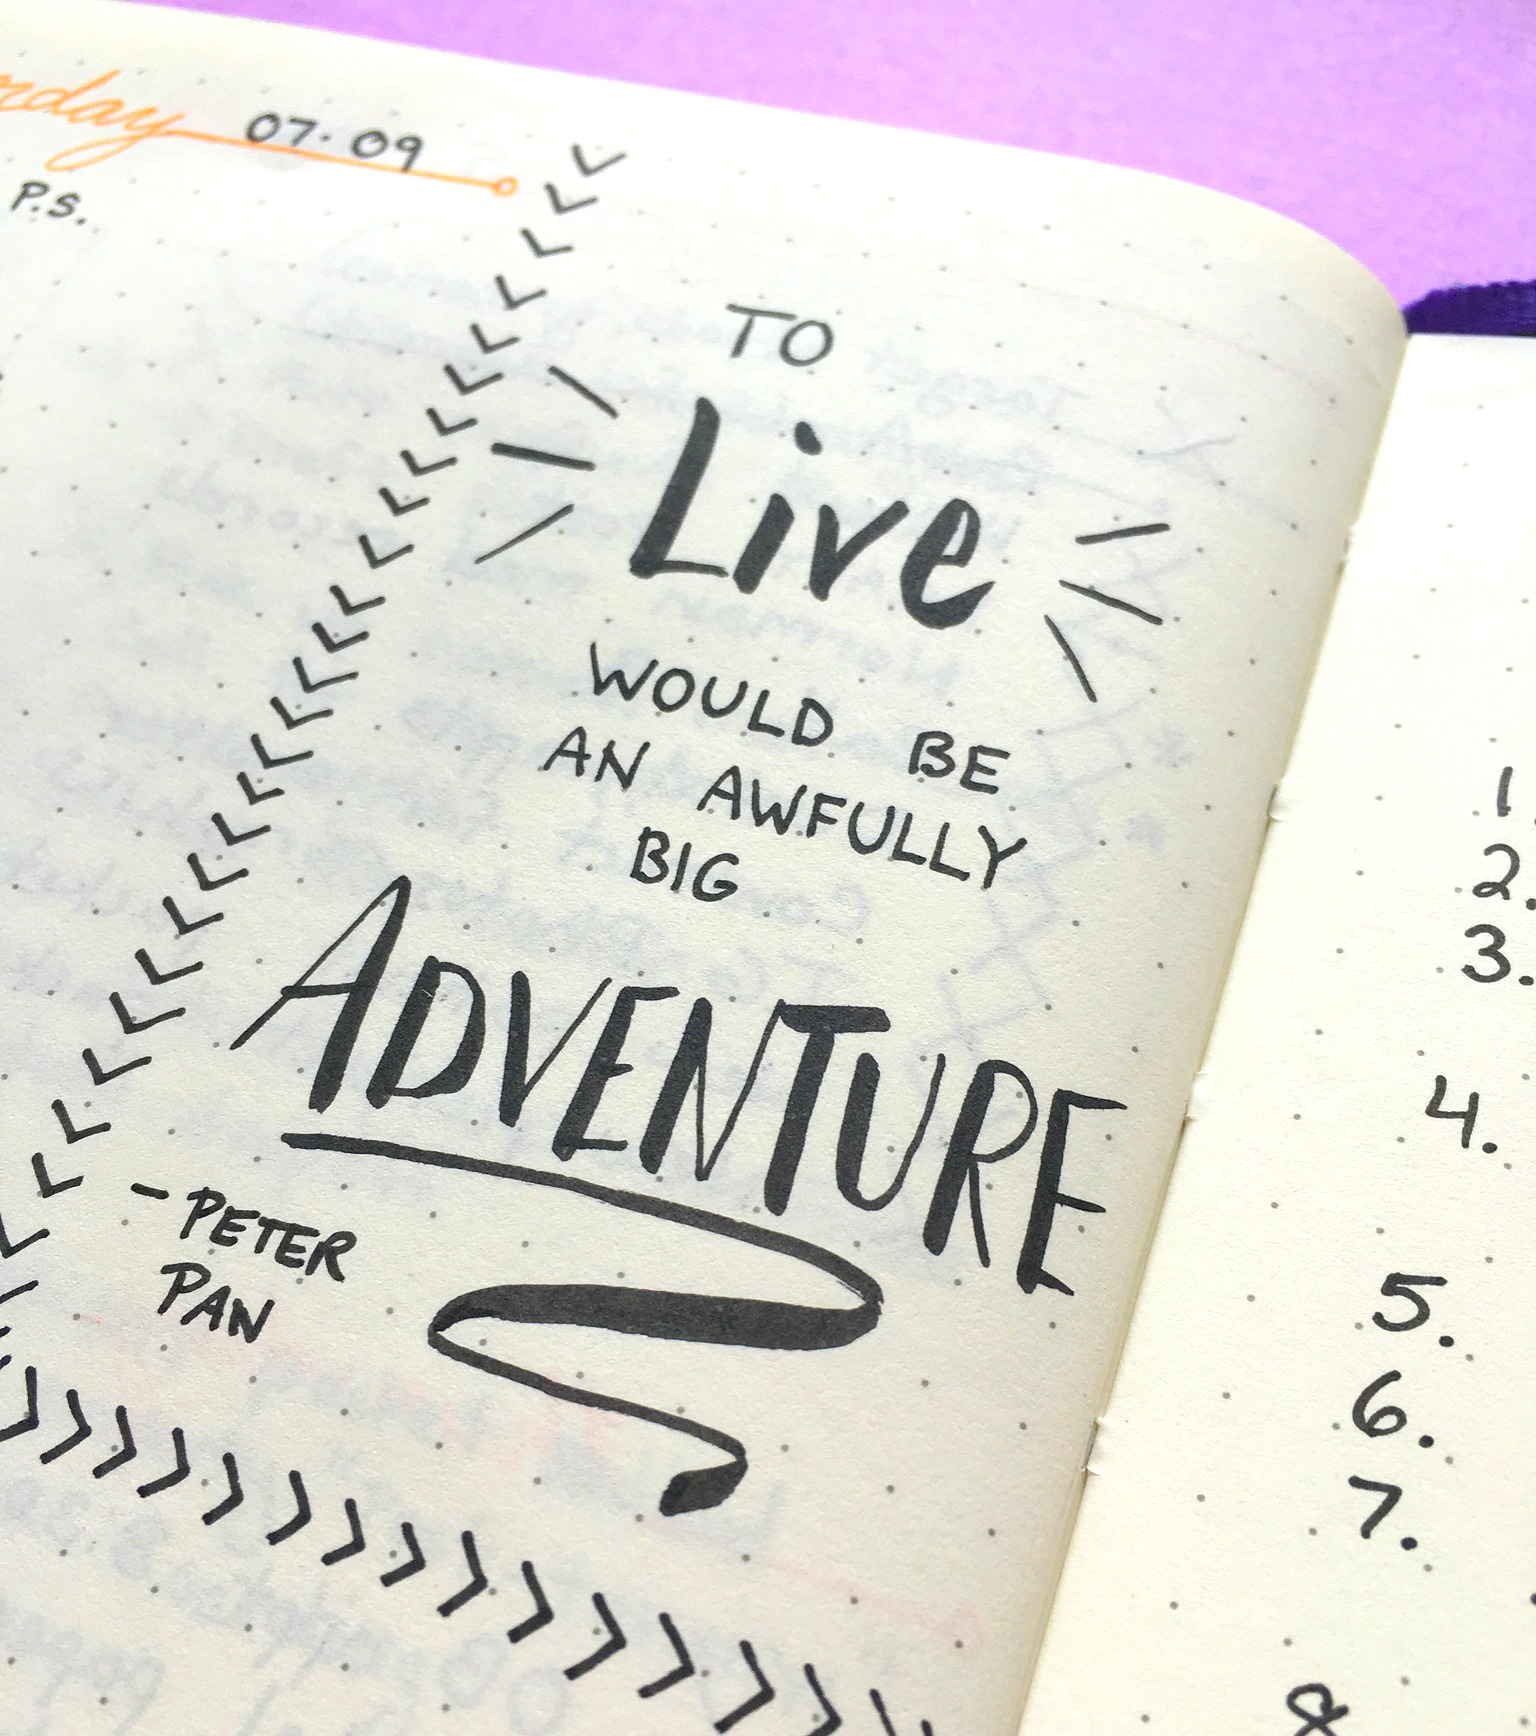 07.09
P.S.
TO
Live
WOULD BE
AN AWFULLY
BIG
ADVENTURE
- PETER
PAN
1.
2.
3.
4.
5.
6.
7.